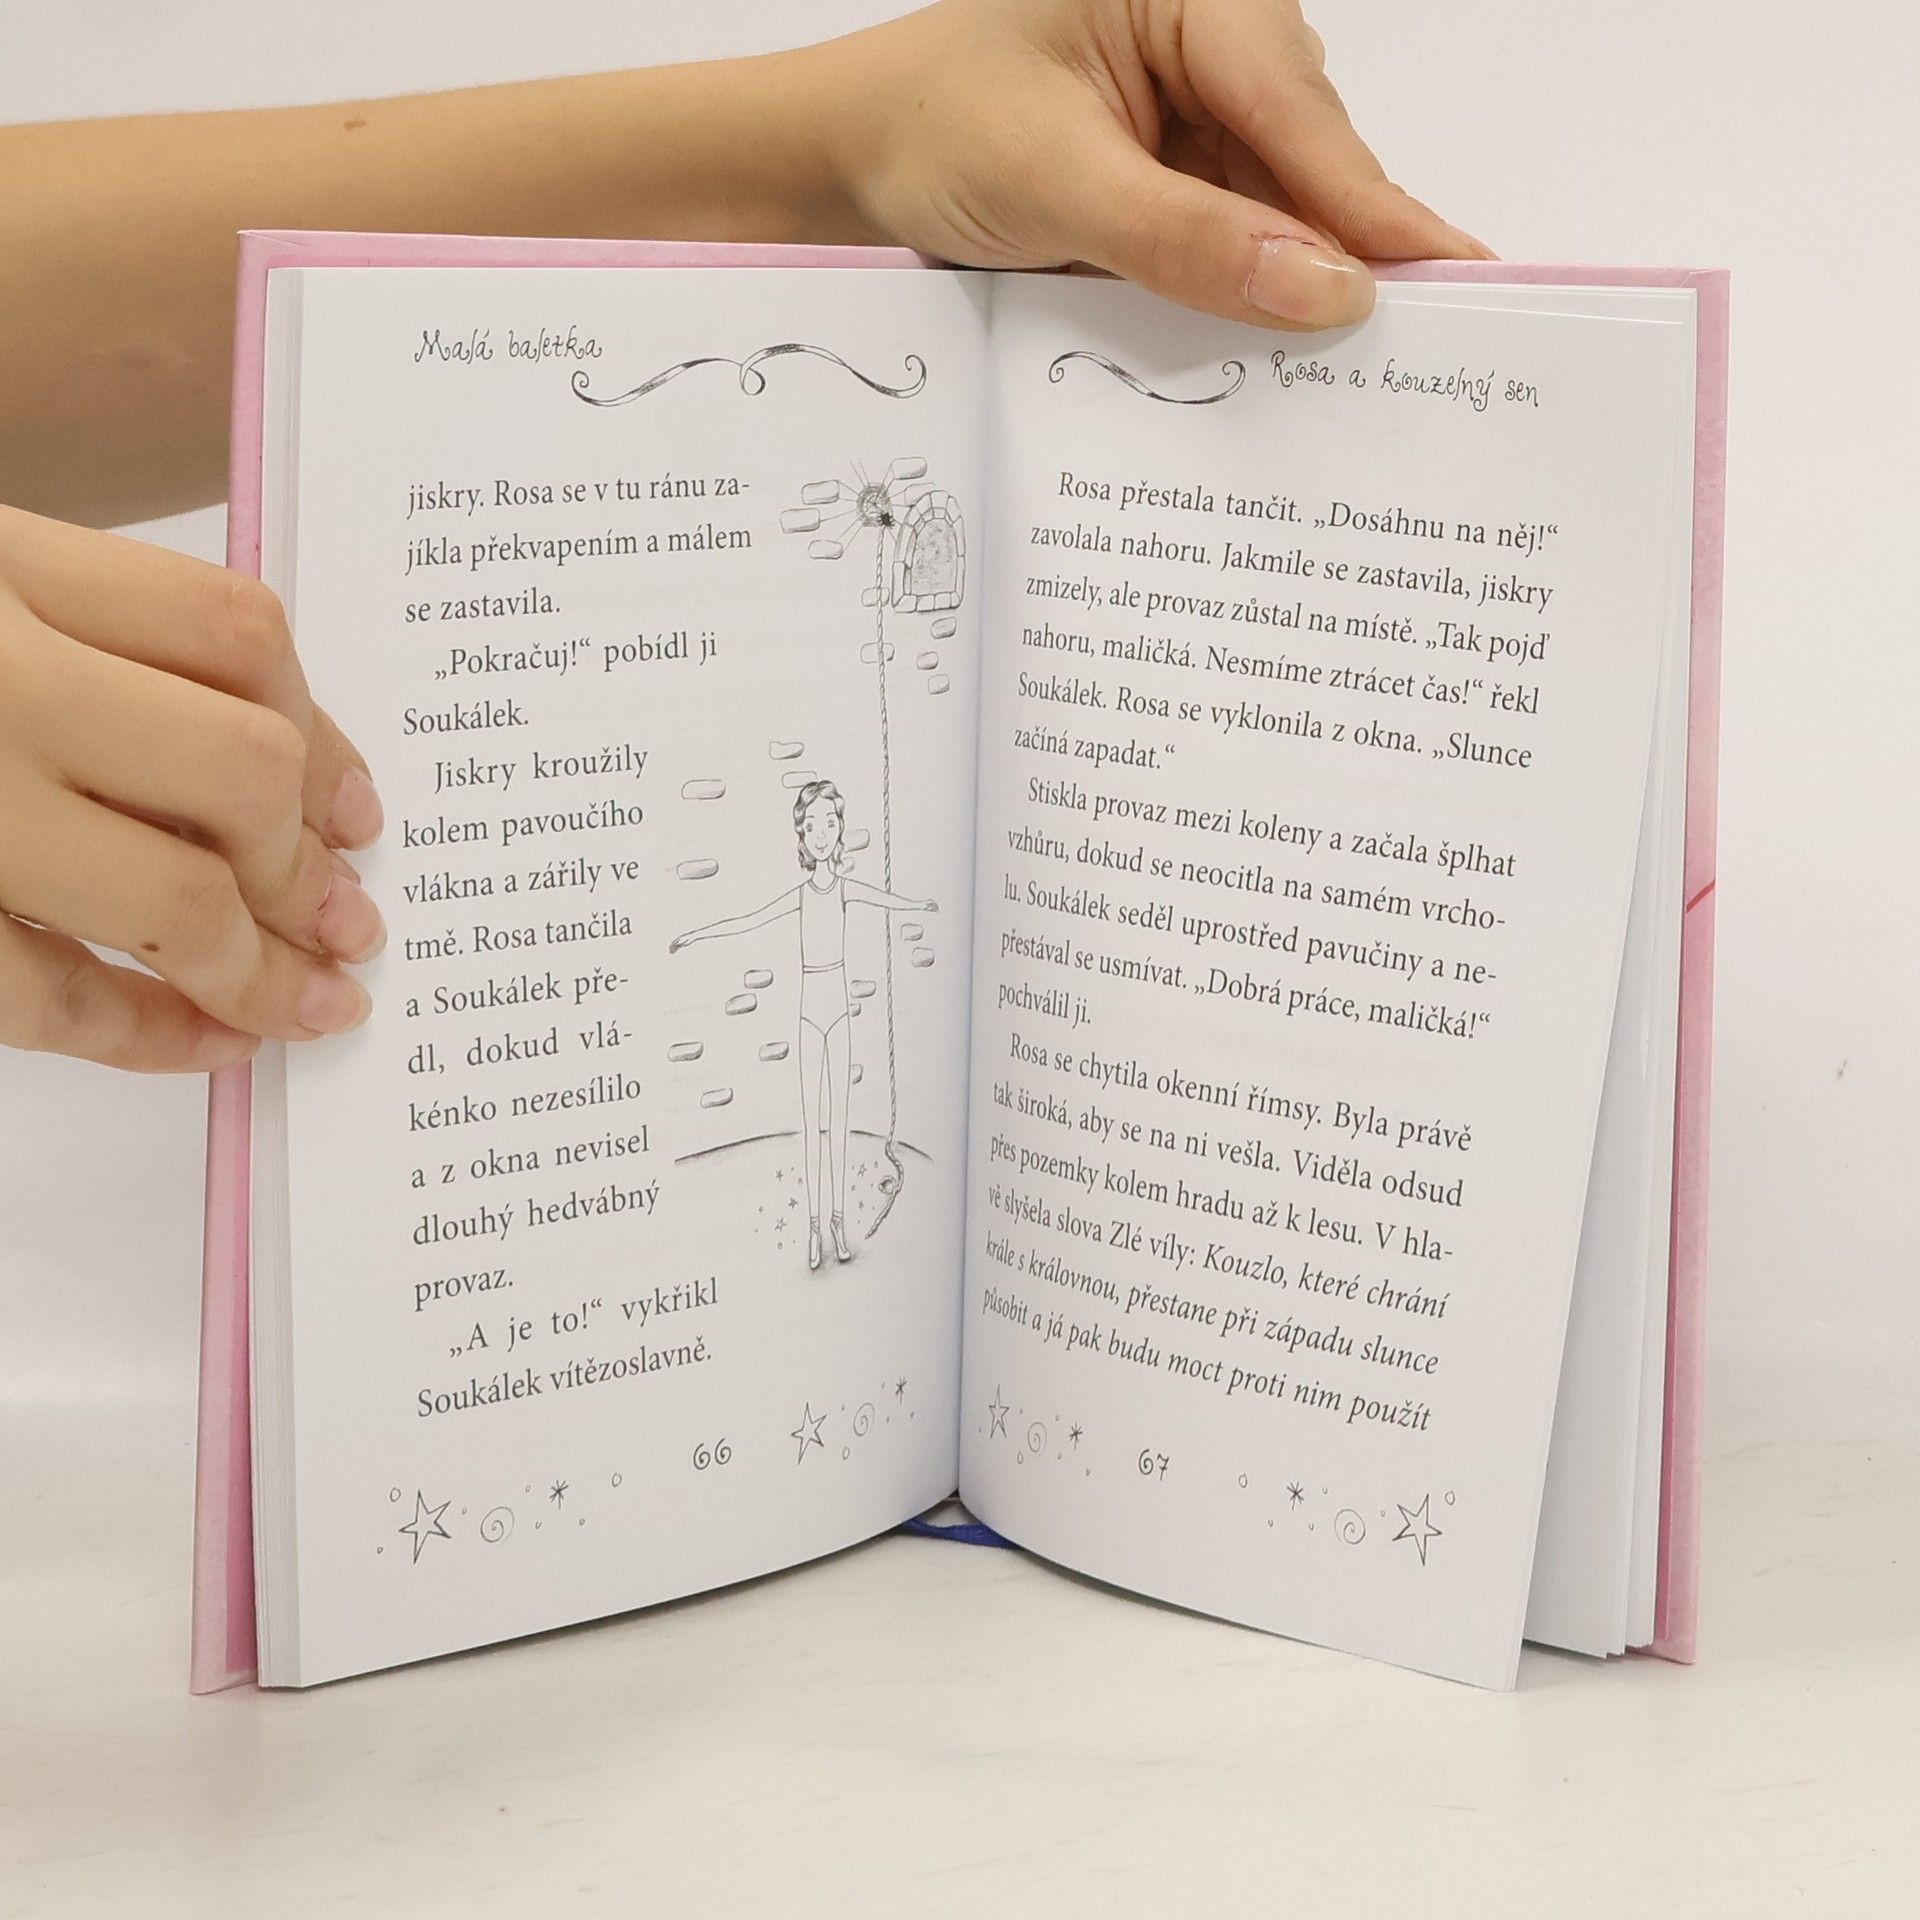 Malá baletka
jiskry. Rosa se v tu ránu za-
jíkla překvapením a málem
se zastavila.
„Pokračuj!“ pobídl ji
Soukálek.
Jiskry kroužily
kolem pavoučího
vlákna a zářily ve
tmě. Rosa tančila
a Soukálek pře-
dl, dokud vlá-
kénko nezesílilo
a z okna nevisel
dlouhý hedvábný
provaz.
„A je to!“ vykřikl
Soukálek vítězoslavně.
66
Rosa a kouzelný sen
Rosa přestala tančit. „Dosáhnu na něj!“
zavolala nahoru. Jakmile se zastavila, jiskry
zmizely, ale provaz zůstal na místě. „Tak pojď
nahoru, maličká. Nesmíme ztrácet čas!“ řekl
Soukálek. Rosa se vyklonila z okna. „Slunce
začíná zapadat.“
Stiskla provaz mezi koleny a začala šplhat
vzhůru, dokud se neocitla na samém vrcho-
lu. Soukálek seděl uprostřed pavučiny a ne-
přestával se usmívat. „Dobrá práce, maličká!“
pochválil ji.
Rosa se chytila okenní římsy. Byla právě
tak široká, aby se na ni vešla. Viděla odsud
přes pozemky kolem hradu až k lesu. V hla-
vě slyšela slova Zlé víly: Kouzlo, které chrání
krále s královnou, přestane při západu slunce
působit a já pak budu moct proti nim použít
67